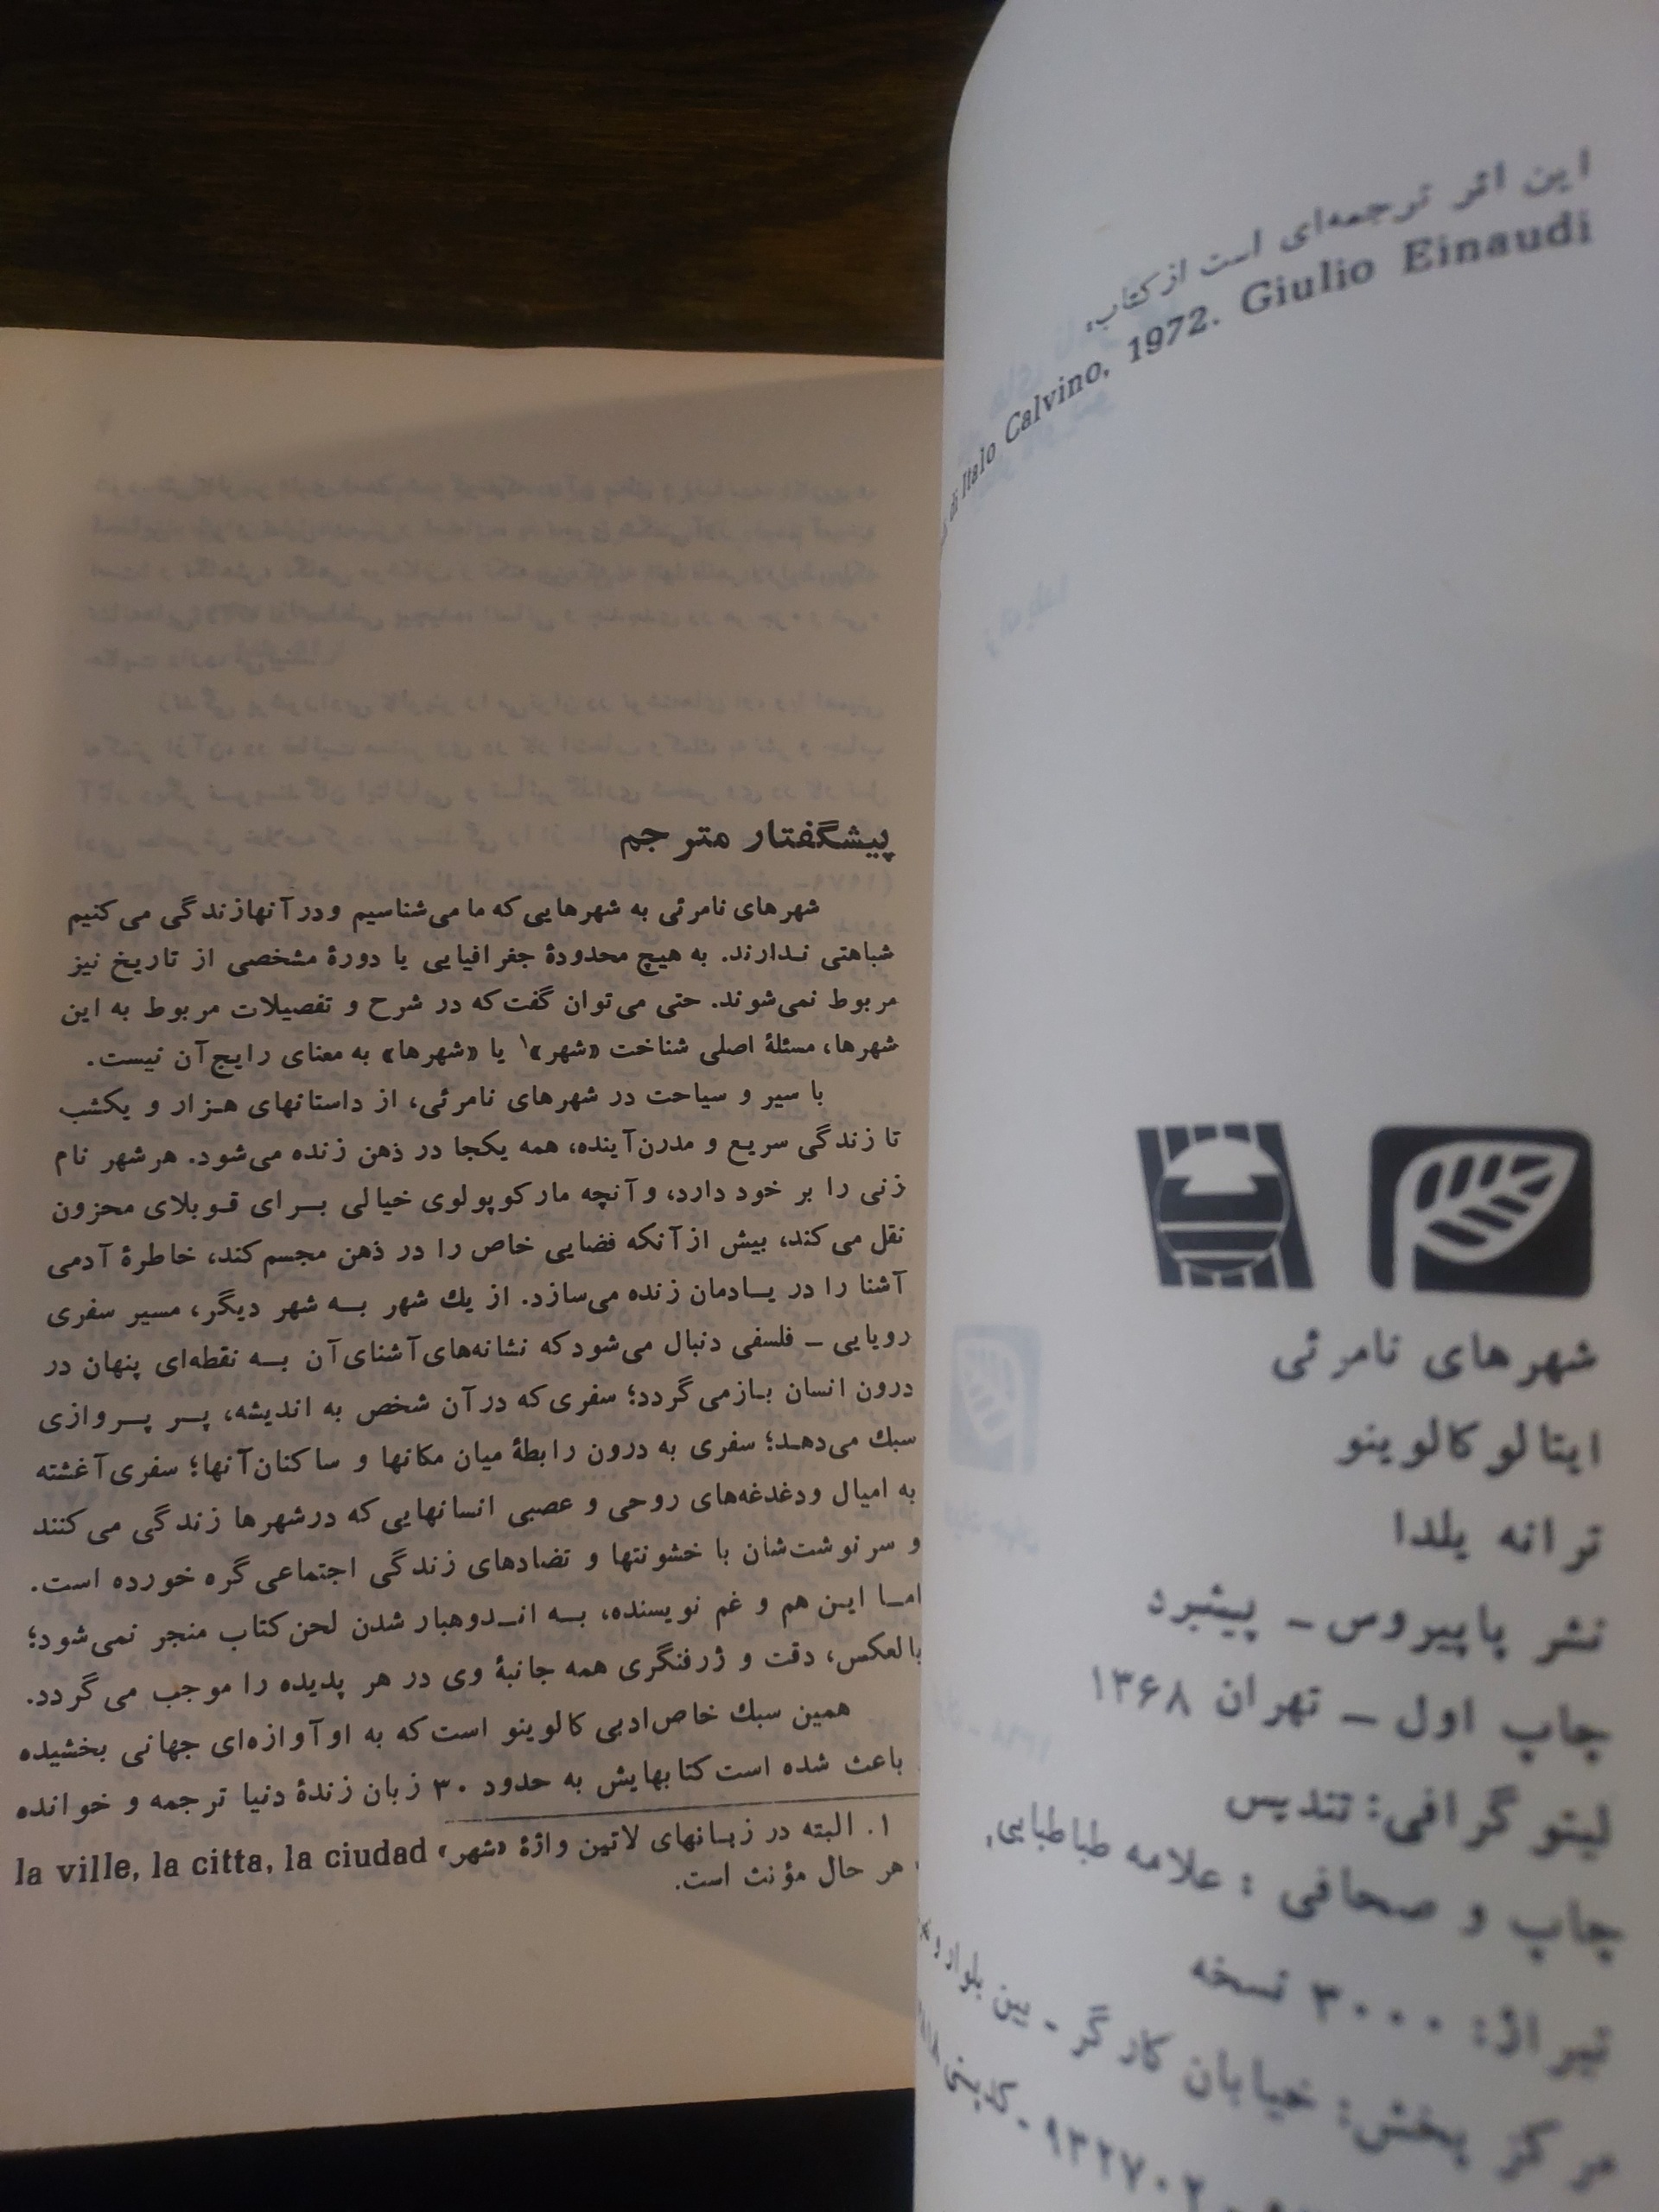 این اثر ترجمه‌ای است از کتاب:
di Italo Calvino, 1972. Giulio Einaudi
شهرهای نامرئی
ایتالو کالوینو
ترانه یلدا
نشر پاپیروس – پیشبرد
چاپ اول – تهران ۱۳۶۸
لیتوگرافی: تندیس
چاپ و صحافی: علامه طباطبایی،
تیراژ: ۳۰۰۰ نسخه
پخش: خیابان کارگر - بین بلوار و
۹۳۲۷۰۲ - کدپستی
پیشگفتار مترجم
شهرهای نامرئی به شهرهایی که ما می‌شناسیم و در آنها زندگی می‌کنیم
شباهتی ندارند. به هیچ محدودهٔ جغرافیایی یا دورهٔ مشخصی از تاریخ نیز
مربوط نمی‌شوند. حتی می‌توان گفت که در شرح و تفصیلات مربوط به این
شهرها، مسئلهٔ اصلی شناخت «شهر»۱ یا «شهرها» به معنای رایج آن نیست.
با سیر و سیاحت در شهرهای نامرئی، از داستانهای هزار و یکشب
تا زندگی سریع و مدرن آینده، همه یکجا در ذهن زنده می‌شود. هر شهر نام
زنی را بر خود دارد، و آنچه مارکوپولوی خیالی برای قوبلای محزون
نقل می‌کند، بیش از آنکه فضایی خاص را در ذهن مجسم کند، خاطرهٔ آدمی
آشنا را در یادمان زنده می‌سازد. از یك شهر به شهر دیگر، مسیر سفری
رویایی – فلسفی دنبال می‌شود که نشانه‌های آشنای آن به نقطه‌ای پنهان در
درون انسان بازمی‌گردد؛ سفری که در آن شخص به اندیشه، پر پروازی
سبك می‌دهد؛ سفری به درون رابطهٔ میان مکانها و ساکنان آنها؛ سفری آغشته
به امیال و دغدغه‌های روحی و عصبی انسانهایی که در شهرها زندگی می‌کنند
و سرنوشت‌شان با خشونتها و تضادهای زندگی اجتماعی گره خورده است.
اما این هم و غم نویسنده، به اندوهبار شدن لحن کتاب منجر نمی‌شود؛
بالعکس، دقت و ژرفنگری همه جانبهٔ وی در هر پدیده را موجب می‌گردد.
همین سبك خاص ادبی کالوینو است که به او آوازه‌ای جهانی بخشیده
باعث شده است کتابهایش به حدود ۳۰ زبان زندهٔ دنیا ترجمه و خوانده
۱. البته در زبانهای لاتین واژهٔ «شهر» la ville, la citta, la ciudad
هر حال مؤنث است.